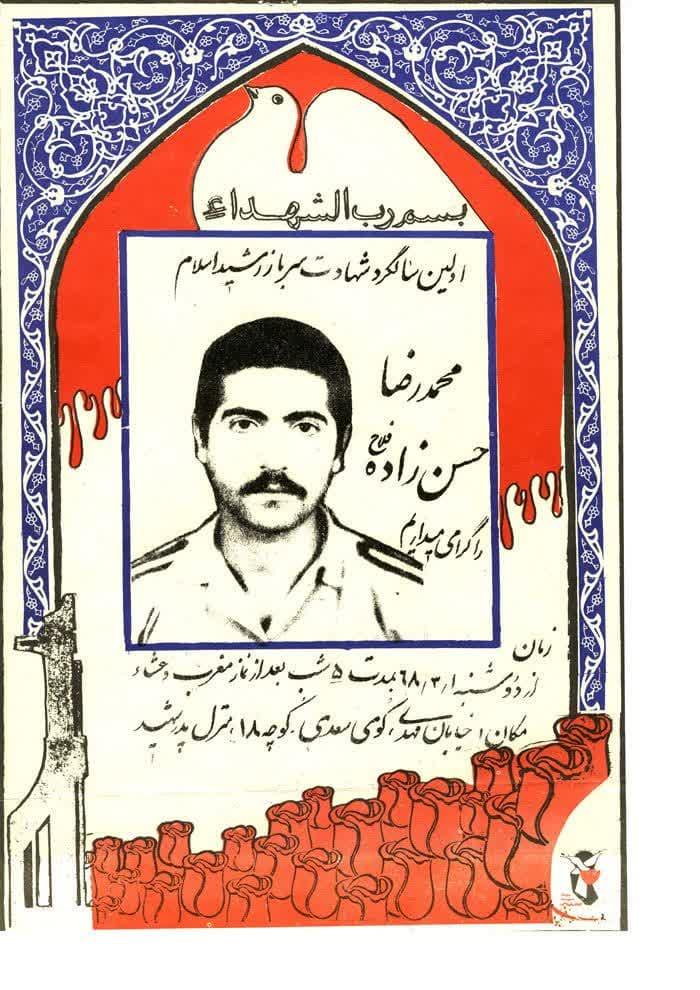 بسم رب الشهداء
اولین سالگرد شهادت سرباز رشید اسلام
محمد رضا
حسن زاده فلاح
را گرامی میداریم
زمان
از دوشنبه ۶۸/۳/۱ بمدت ۵ شب بعد از نماز مغرب و عشاء
مکان: خیابان مهدی، کوی سعدی، کوچه ۱۸، منزل پدر شهید